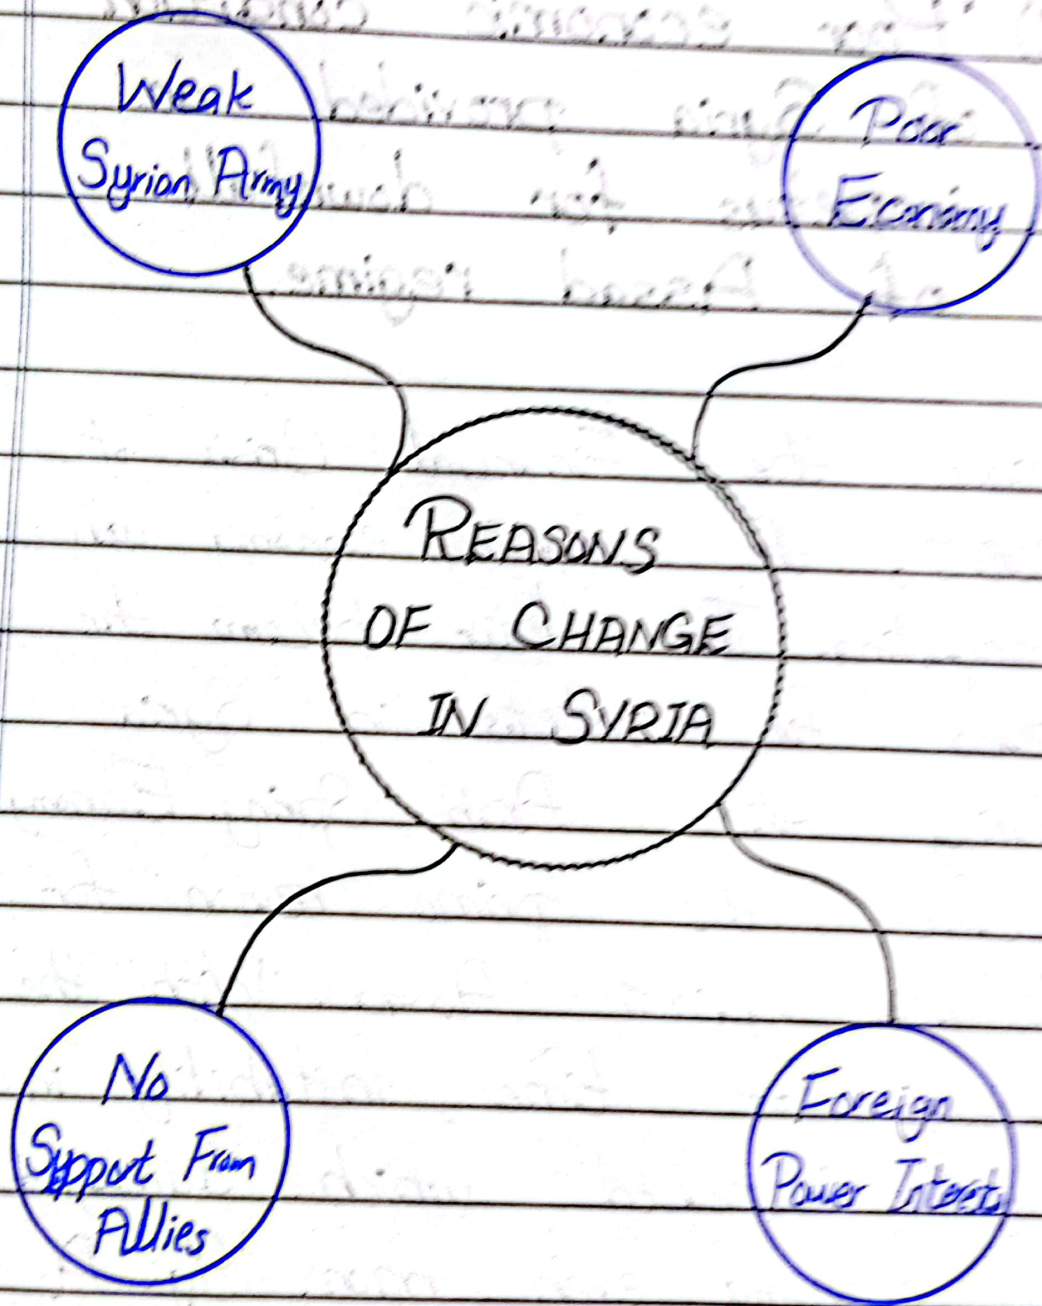 Weak
Syrian Army
Poor
Economy
REASONS
OF CHANGE
IN SYRIA
No
Support From
Allies
Foreign
Power Interests